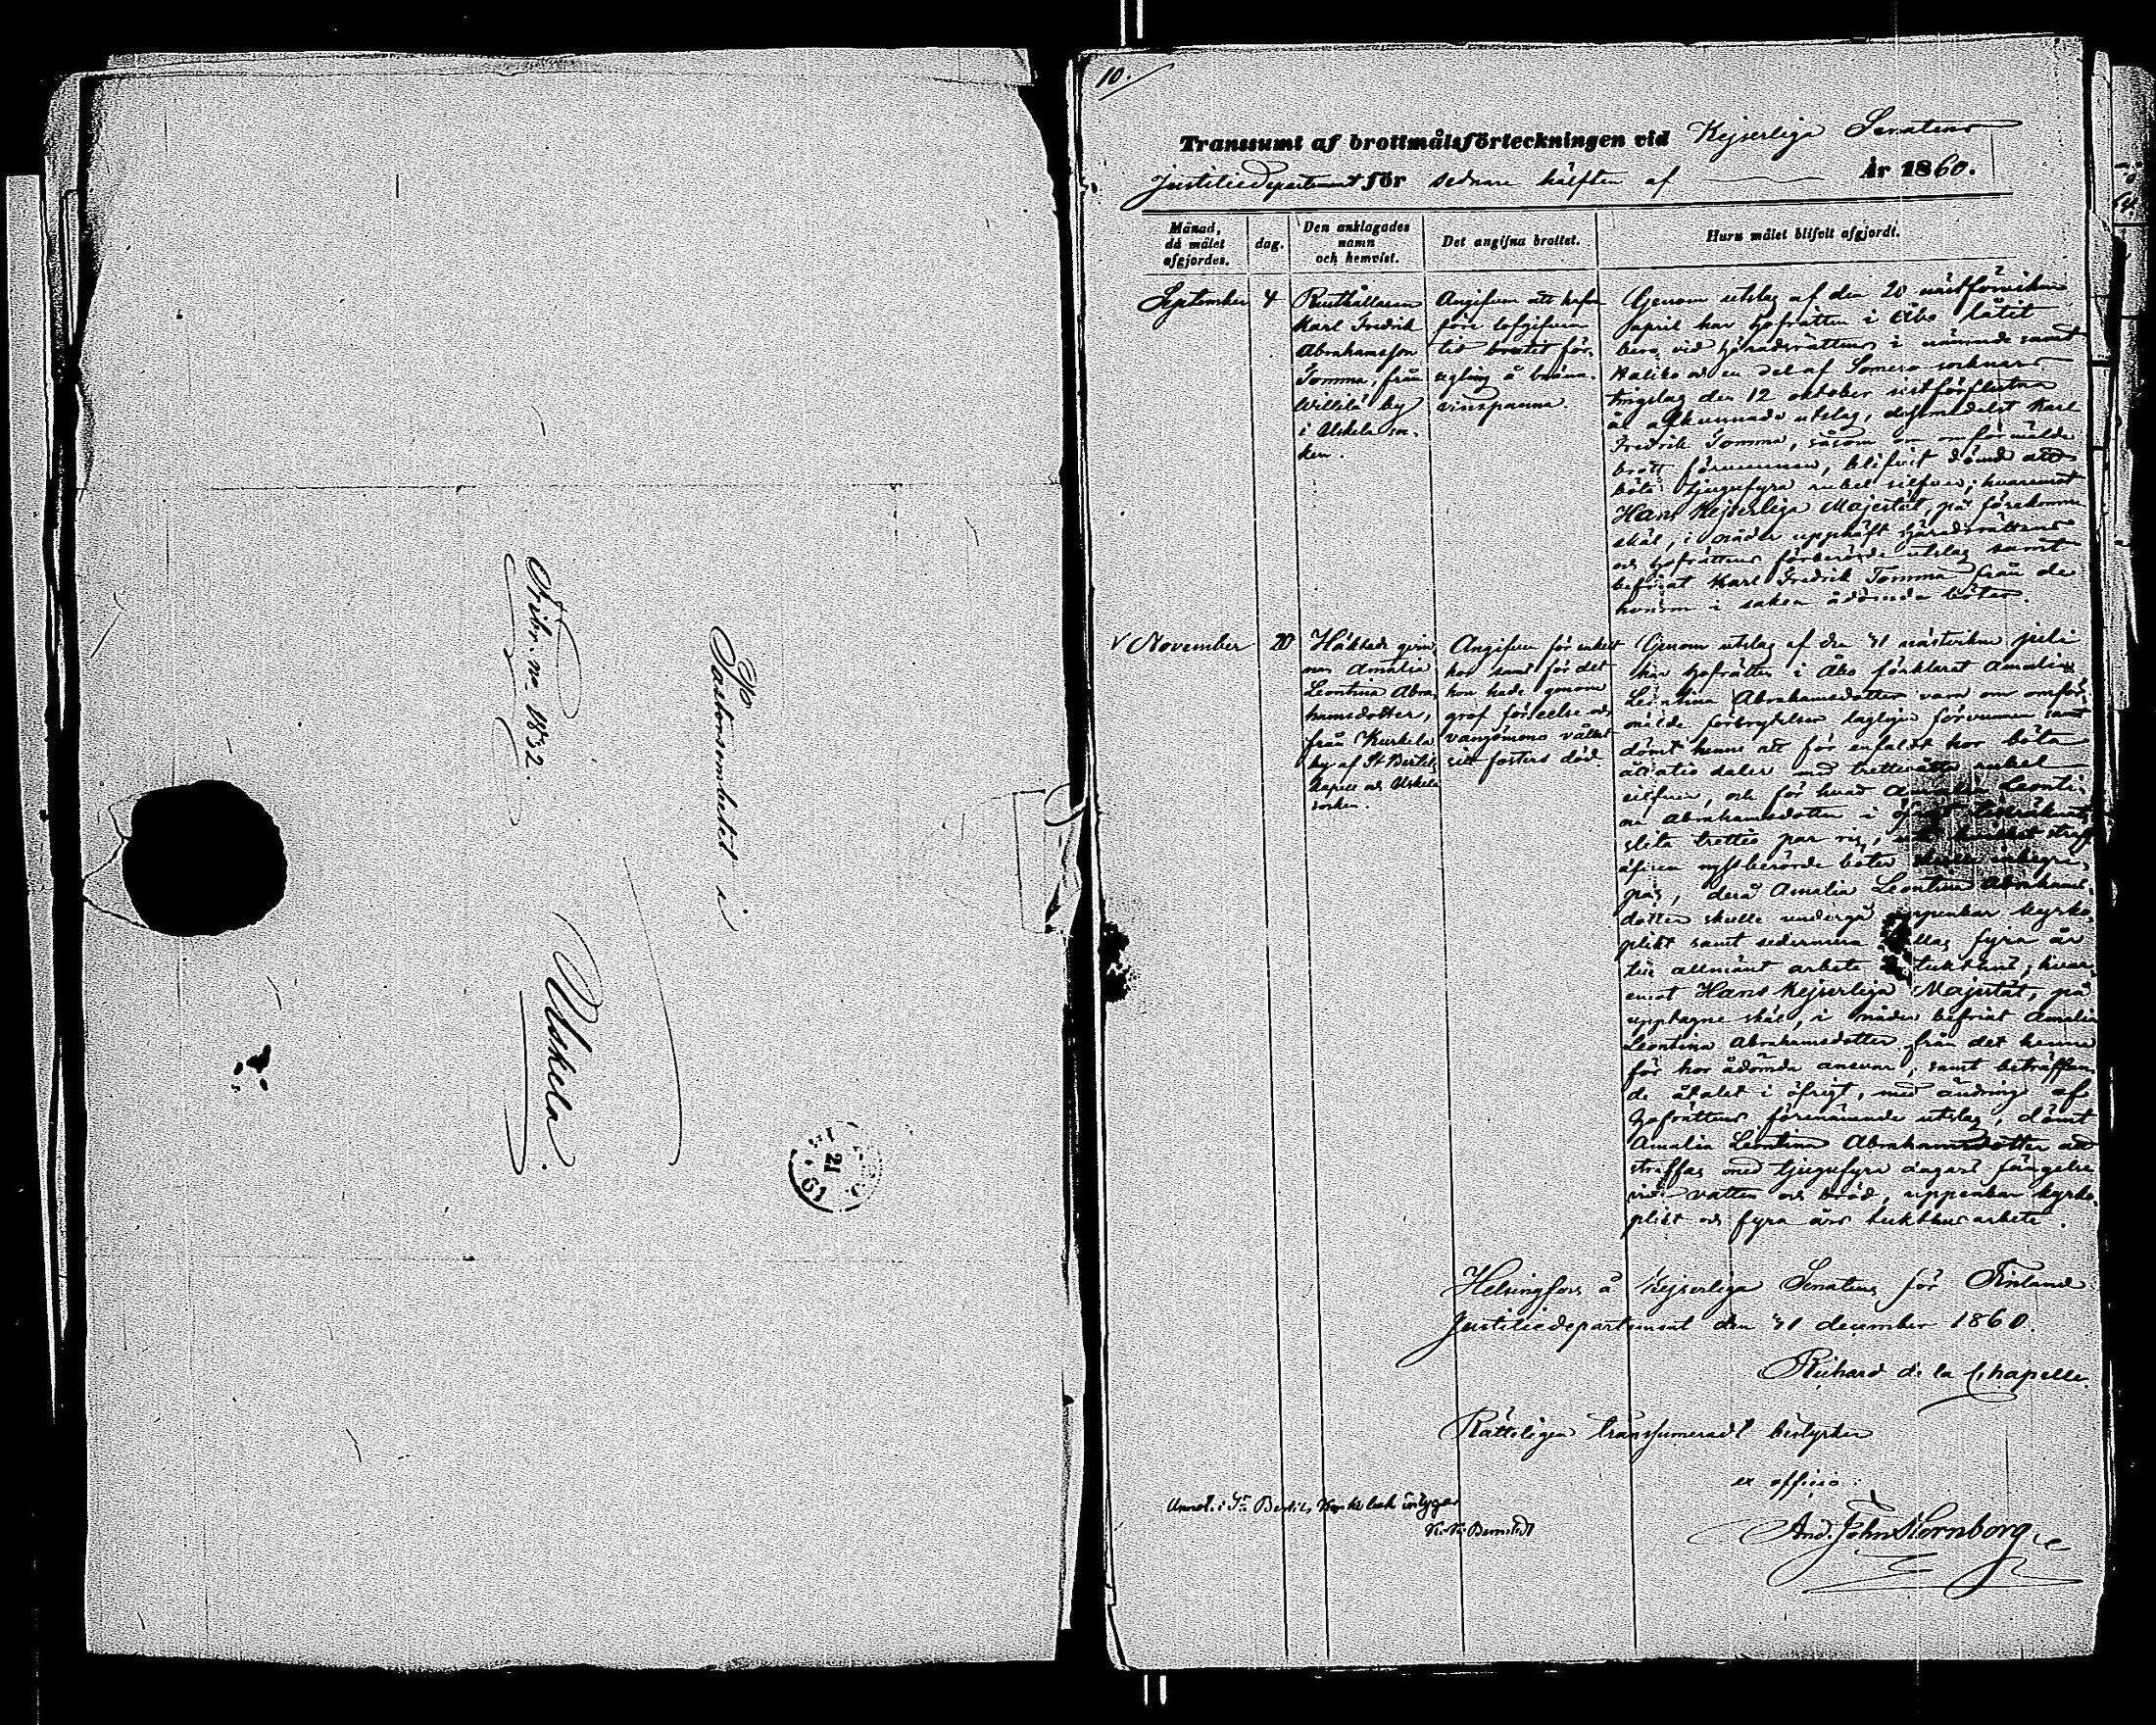 Fribr. no 1832.
Pastorsembetet i
Uskela.
21
61
10.
Transsumt af brottmålsförteckningen vid Kejserliga Senatens
Justitiedepartement för sednare hälften af År 1860.
Månad, då målet afgjordes.
dag.
Den anklagades namn och hemvist.
Det angifna brottet.
Huru målet blifvit afgjordt.
September
4
Rusthållaren
Karl Fredrik
Abrahamsson
Tomma, från
Willilä by
i Uskela soc-
ken.
Angifven att hafva
före lofgifven
tid brutit för-
segling å bränn-
vinspanna.
Genom utslag af den 20 nästförvikne
april har hofrätten i Åbo låtit
bero vid häradsrättens i nämnde samt
Haliko och en del af Somero socknars
tingslag den 12 oktober sistförflutna
år afkunnade utslag, derigenom Karl
Fredrik Tomma, såsom om omförmälde
brott förvunnen, blifvit dömd att
böta tjugufyra rubel silfver; hvaremot
Hans Kejserliga Majestät, på förekomne
skäl, i nåder upphäft häradsrättens
och hofrättens förberörde utslag samt
befriat Karl Fredrik Tomma från de
honom i saken ådömda böter.
√ November
20
Häktade qvin-
nan Amalia
Leontina Abra-
hamsdotter,
från Kurkela
by af St Bertils
kapell och Uskela
socken.
Angifven för enkelt
hor samt för det
hon hade genom
grof förseelse och
vangömmo vållat
sitt fosters död.
Genom utslag af den 31 nästvikne juli
har hofrätten i Åbo förklarat Amalia
Leontina Abrahamsdotter vara om omför-
mälde förbrytelser lagligen förvunnen samt
dömt henne att för enfaldt hor böta
åttatio daler med trettioåtta rubel
silfver, och för hvad Amalia Leonti-
na Abrahamsdotter i öfrigt
slita trettio par ris, straff
äfven nyssberörde böter skulle inbegri-
pas, derå Amalia Leontina Abrahams-
dotter skulle undergå uppenbar kyrko-
plikt samt sedermera hållas fyra år
till allmänt arbete å tukthus; hvar-
emot Hans Kejserliga Majestät, på
upptagne skäl, i nåder befriat Amalia
Leontina Abrahamsdotter från det henne
för hor ådömda ansvar, samt beträffan-
de åtalet i öfrigt, med ändring af
hofrättens förenämnde utslag, dömt
Amalia Leontina Abrahamsdotter att
straffas med tjugufyra dagars fängelse
vid vatten och bröd, uppenbar kyrko-
plikt och fyra års tukthusarbete.
Helsingfors å Kejserliga Senatens för Finland
Justitiedepartement den 31 december 1860.
Richard de la Chapelle.
Rätteligen transsumeradt bestyrker
ex officio:
And. John Hornborg
Annot. i St Bertils, Kyrko bok intygar
K. K. Bernstedt